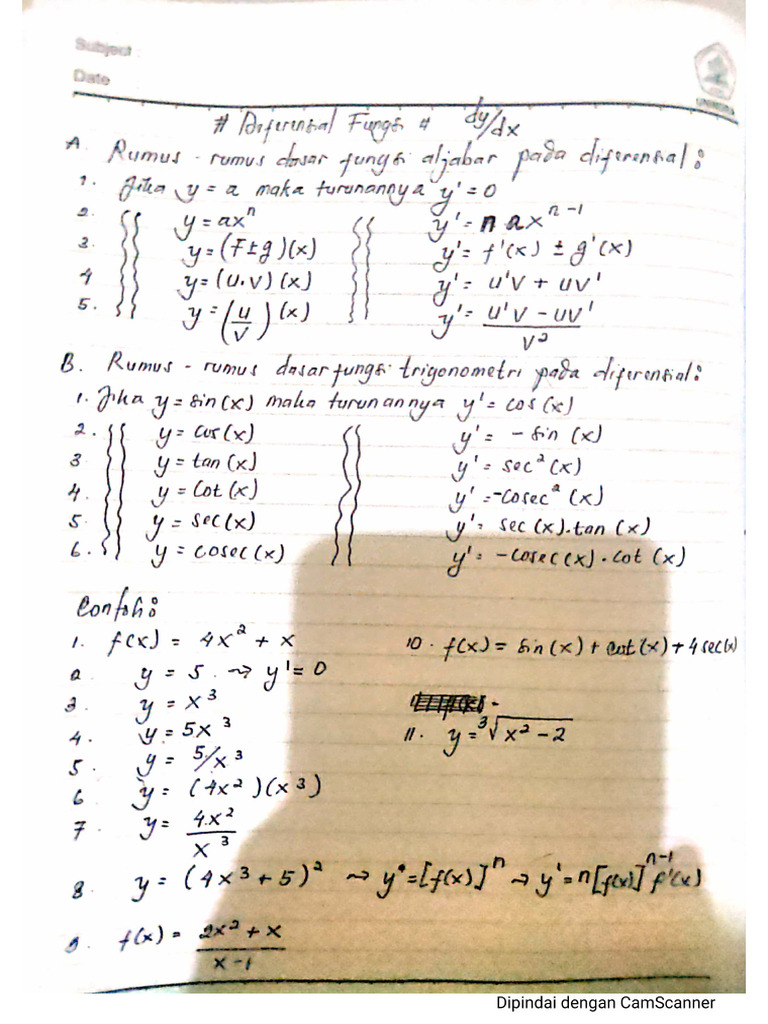 Subject
Date
# Diferensial Fungsi # dy/dx
A. Rumus - rumus dasar fungsi aljabar pada diferensial :
1. Jika y = a maka turunannya y' = 0
2. y = ax^n y' = n ax^{n-1}
3. y = (f ± g)(x) y' = f'(x) ± g'(x)
4 y = (u.v)(x) y' = u'v + uv'
5. y = (u/v)(x) y' = (u'v - uv')/v²
B. Rumus - rumus dasar fungsi trigonometri pada diferensial :
1. Jika y = sin(x) maka turunannya y' = cos(x)
2. y = cos(x) y' = - sin (x)
3 y = tan(x) y' = sec²(x)
4. y = cot(x) y' = -cosec²(x)
5. y = sec(x) y' = sec(x).tan(x)
6. y = cosec(x) y' = -cosec(x).cot(x)
Contoh :
1. f(x) = 4x² + x
2 y = 5 → y' = 0
3. y = x³
4. y = 5x³
5. y = 5/x³
6 y = (4x²)(x³)
7. y = 4x²/x³
8. y = (4x³ + 5)² → y = [f(x)]^n → y' = n[f(x)]^{n-1} f'(x)
9. f(x) = (2x² + x)/(x - 1)
10. f(x) = sin(x) + cot(x) + 4 sec(x)
11. y = ³√(x² - 2)
Dipindai dengan CamScanner